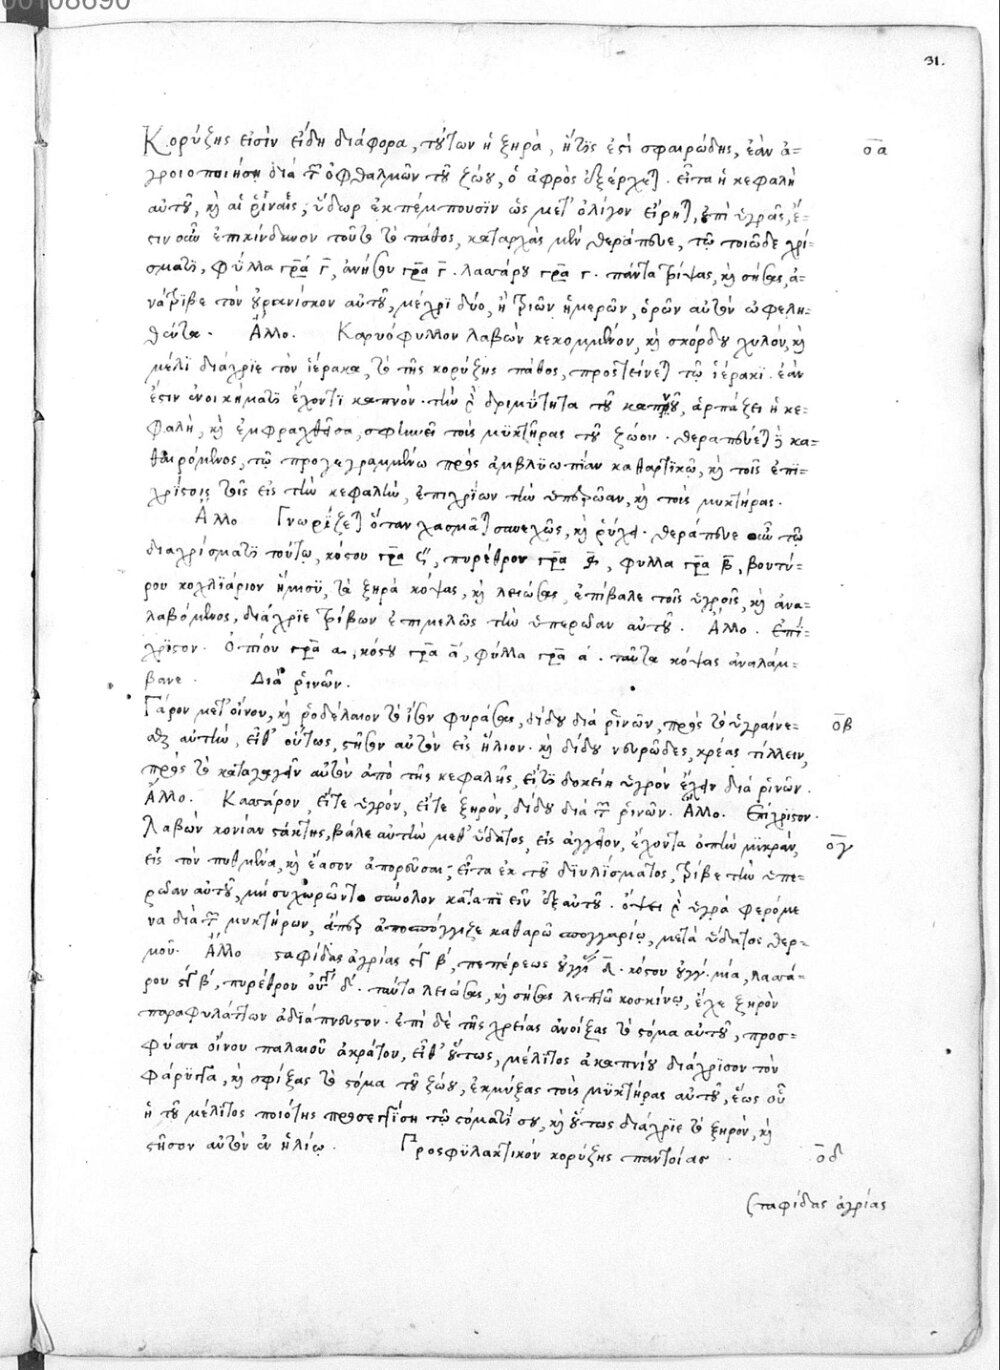 00108690
31.
Κορύζης εἰσὶν εἴδη διάφορα, τούτων ἡ ξηρὰ, ἥτις ἐστὶ σφαιρώδης, ἐὰν ἀ= ο̅α
γροιοποιήσῃ διὰ τῶν ὀφθαλμῶν τοῦ ζώου, ὁ ἀφρὸς ἐξέρχεται. εἶτα ἡ κεφαλὴ
αὐτοῦ, καὶ αἱ ῥῖναις, ὕδωρ ἐκπέμπουσιν ὡς μετ' ὀλίγον εἴρηται, ἐπὶ ὑγρᾶς, ἔ=
στιν οὖν ἐπικίνδυνον τοῦτο τὸ πάθος, καταρχὰς μὲν θεράπευε, τῷ τοιῶδε χρί=
σματι, φύλλα γρα γ, ἀνήθου γρα γ. λασάρου γρα γ. πάντα τρίψας, καὶ σήσας, ἀ=
νάτριβε τὸν οὐρανίσκον αὐτοῦ, μέχρι δύο, ἢ τριῶν ἡμερῶν, ὁρῶν αὐτὸν ὠφελη=
θέντα. Ἄλλο. Καρυόφυλλον λαβὼν κεκομμένον, καὶ σκόρδου χυλὸν, καὶ
μέλι διάχριε τὸν ἱέρακα, τὸ τῆς κορύζης πάθος, προστείνεται τῷ ἱέρακι. ἐὰν
ἐστιν ἐν οικήματι ἔχοντι καπνὸν. τὴν γὰρ δριμύτητα τοῦ καπνοῦ, ἁρπάζει ἡ κε=
φαλὴ, καὶ ἐμφραχθεῖσα, σφίγγει τοὺς μυκτῆρας τοῦ ζώου. θεραπεύεται δὲ κα=
θαιρόμενος, τῷ προγεγραμμένω πρὸς ἀμβλυωπίαν καθαρτικῷ, καὶ τοῖς ἐπι=
χρίστοις τοῖς εἰς τὴν κεφαλὴν, ἐπιχρίων τὴν ὑπερῶαν, καὶ τοὺς μυκτῆρας.
Ἄλλο Γνωρίζεται ὅταν χασμᾶται συνεχῶς, καὶ ῥύγχῃ. θεράπευε οὖν τῷ
διαχρίσματι τούτῳ, κόστου γρα ς, πυρέθρου γρα, φύλλα γρα β, βουτύ=
ρου κοχλιάριον ἥμισυ, τὰ ξηρὰ κόψας, καὶ λειώσας, ἐπίβαλε τοῖς ὑγροῖς, καὶ ἀνα=
λαβόμενος, διάχριε τρίβων ἐπιμελῶς τὴν ὑπερώαν αὐτοῦ. Ἄλλο. Ἐπί=
χρισον. Ὀπίου γρα α, κόστου γρα α, φύλλα γρα α. ταῦτα κόψας ἀναλάμ=
βανε. Διὰ ῥινῶν.
Γάρον μετ' οἴνου, καὶ ῥοδέλαιον τὸ ἴσον φυράσας, δίδου διὰ ῥινῶν, πρὸς τὸ ὑγραίνε= ο̅β
σθαι αὐτὴν, εἶθ' οὕτως, στῆσον αὐτὸν εἰς ἥλιον. καὶ δίδου νευρῶδες, κρέας τίλλειν,
πρὸς τὸ καταγαγεῖν αὐτὸν ἀπὸ τῆς κεφαλῆς, εἴ τι δοκείη ὑγρὸν ἔχειν διὰ ῥινῶν.
Ἄλλο. Κασσάρον εἴτε ὑγρὸν, εἴτε ξηρὸν, δίδου διὰ τῶν ῥινῶν. Ἄλλο. Ἐπίχρισον.
Λαβὼν κονίαν στάκτης, βάλε αὐτὴν μεθ' ὕδατος, εἰς ἀγγεῖον, ἔχοντα ὀπὴν μικρὰν, ο̅γ
εἰς τὸν πυθμένα, καὶ ἔασον ἀπορεῦσαι, εἶτα ἐκ τοῦ διυλίσματος, τρίβε τὴν ὑπε=
ρώαν αὐτοῦ, μὴ συγχωρῶν τὸ σύνολον καταπιεῖν ἐξ αὐτοῦ. ὄψει γὰρ ὑγρὰ φερόμε
να διὰ τῶν μυκτήρων, ἅπερ ἀποσπόγγιζε καθαρῶ σπογγαρίῳ, μετὰ ὕδατος θερ=
μοῦ. Ἄλλο σταφίδας ἀγρίας στ β', πεπέρεως οὐγγ δ. κόστου οὐγγ. μία, λασά=
ρου στ β', πυρέθρου οὐγγ δ'. ταῦτα λειώσας, καὶ σήσας λεπτῶ κοσκίνῳ, ἔχε ξηρὸν
παραφυλάττων ἀδιάπνευστον. ἐπὶ δὲ τῆς χρείας ἀνοίξας τὸ στόμα αὐτοῦ, προσ=
φύσα οἴνου παλαιοῦ ἀκράτου, εἶθ' οὕτως, μέλιτος ἀκαπνίου διάχρισον τὸν
φάρυγγα, καὶ σφίξας τὸ στόμα τοῦ ζώου, ἐκμύξας τοὺς μυκτῆρας αὐτοῦ, ἕως οὗ
ἡ τοῦ μέλιτος ποιότης προσεγγίσῃ τῷ στόματί σου, καὶ οὕτως διάχριε τὸ ξηρὸν, καὶ
στῆσον αὐτὸν ἐν ἡλίῳ. Προσφυλακτικὸν κορύζης παντοίας. ο̅δ
Σταφίδας ἀγρίας